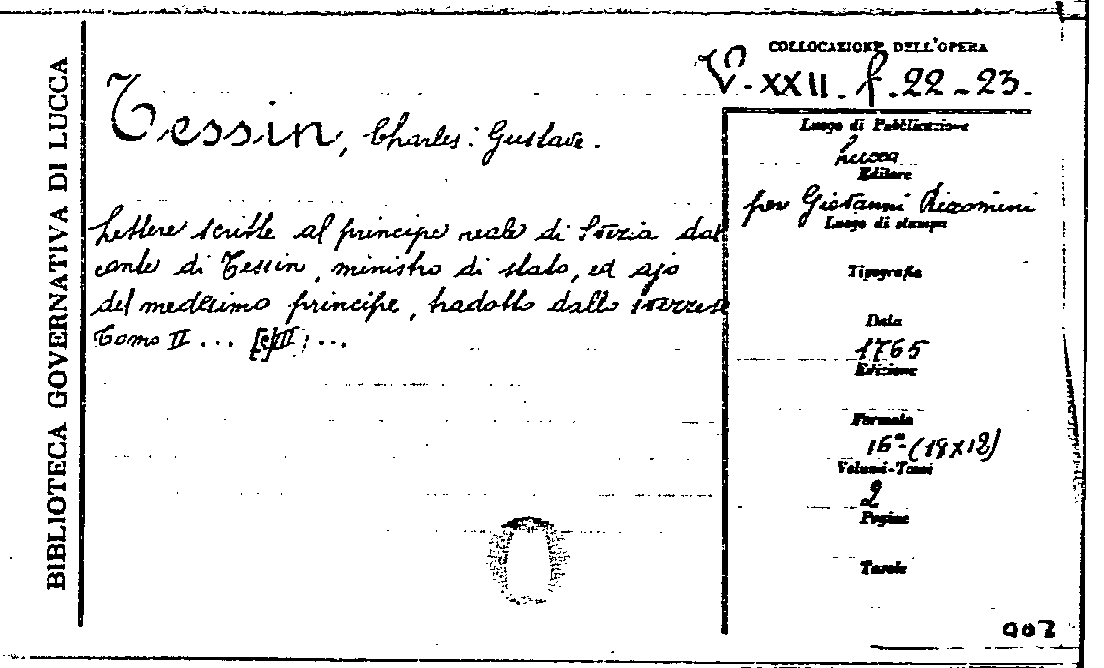 BIBLIOTECA GOVERNATIVA DI LUCCA
COLLOCAZIONE DELL'OPERA
V. XXII. f. 22-23.
Tessin, Charles: Gustave.
Lettere scritte al principe reale di Svezia dal
conte di Tessin, ministro di stato, ed ajo
del medesimo principe, tradotto dallo svezzese
Tomo II ... [e] III; ...
Luogo di Pubblicazione
Lucca
Editore
per Giovanni Riccomini
Luogo di stampa
Tipografia
Data
1765
Edizione
Formato
16° (18x12)
Volumi-Tomi
2
Pagine
Tavole